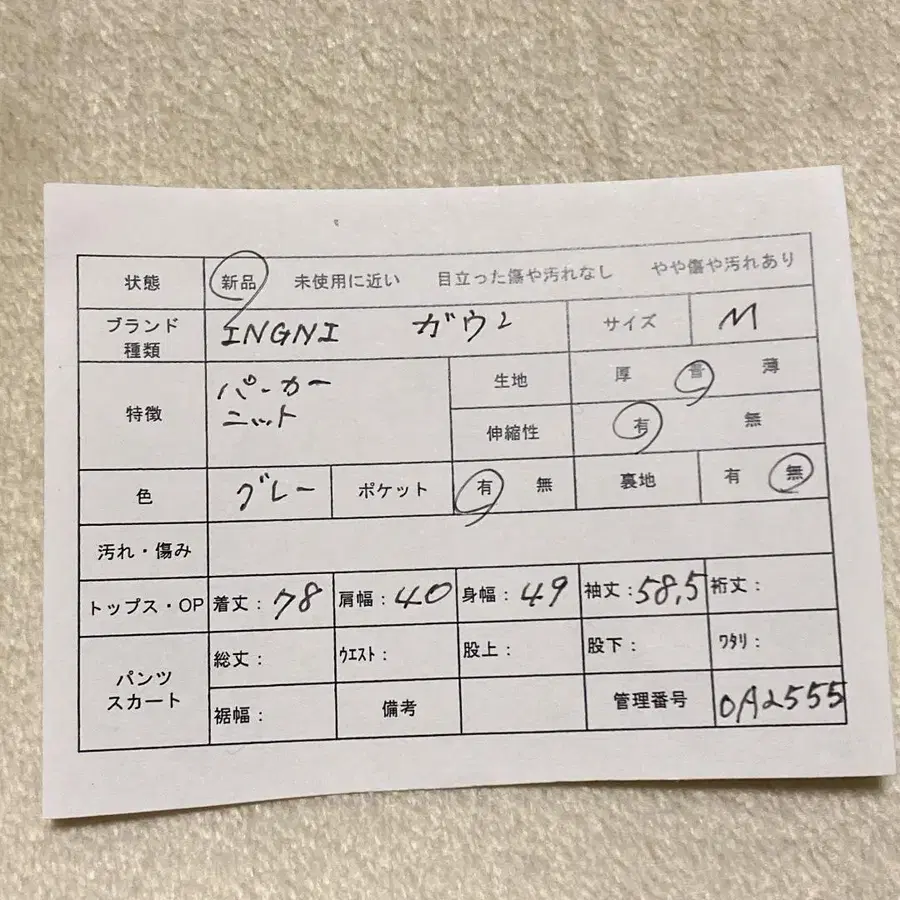 状態 新品 未使用に近い 目立った傷や汚れなし やや傷や汚れあり
ブランド 種類 INGNI ガウン サイズ M
特徴 パーカー
ニット
生地 厚 普 薄
伸縮性 有 無
色 グレー ポケット 有 無 裏地 有 無
汚れ・傷み
トップス・OP 着丈: 78 肩幅: 40 身幅: 49 袖丈: 58,5 裄丈:
パンツ
スカート
総丈: ｳｴｽﾄ: 股上: 股下: ﾜﾀﾘ:
裾幅: 備考 管理番号 0A2555